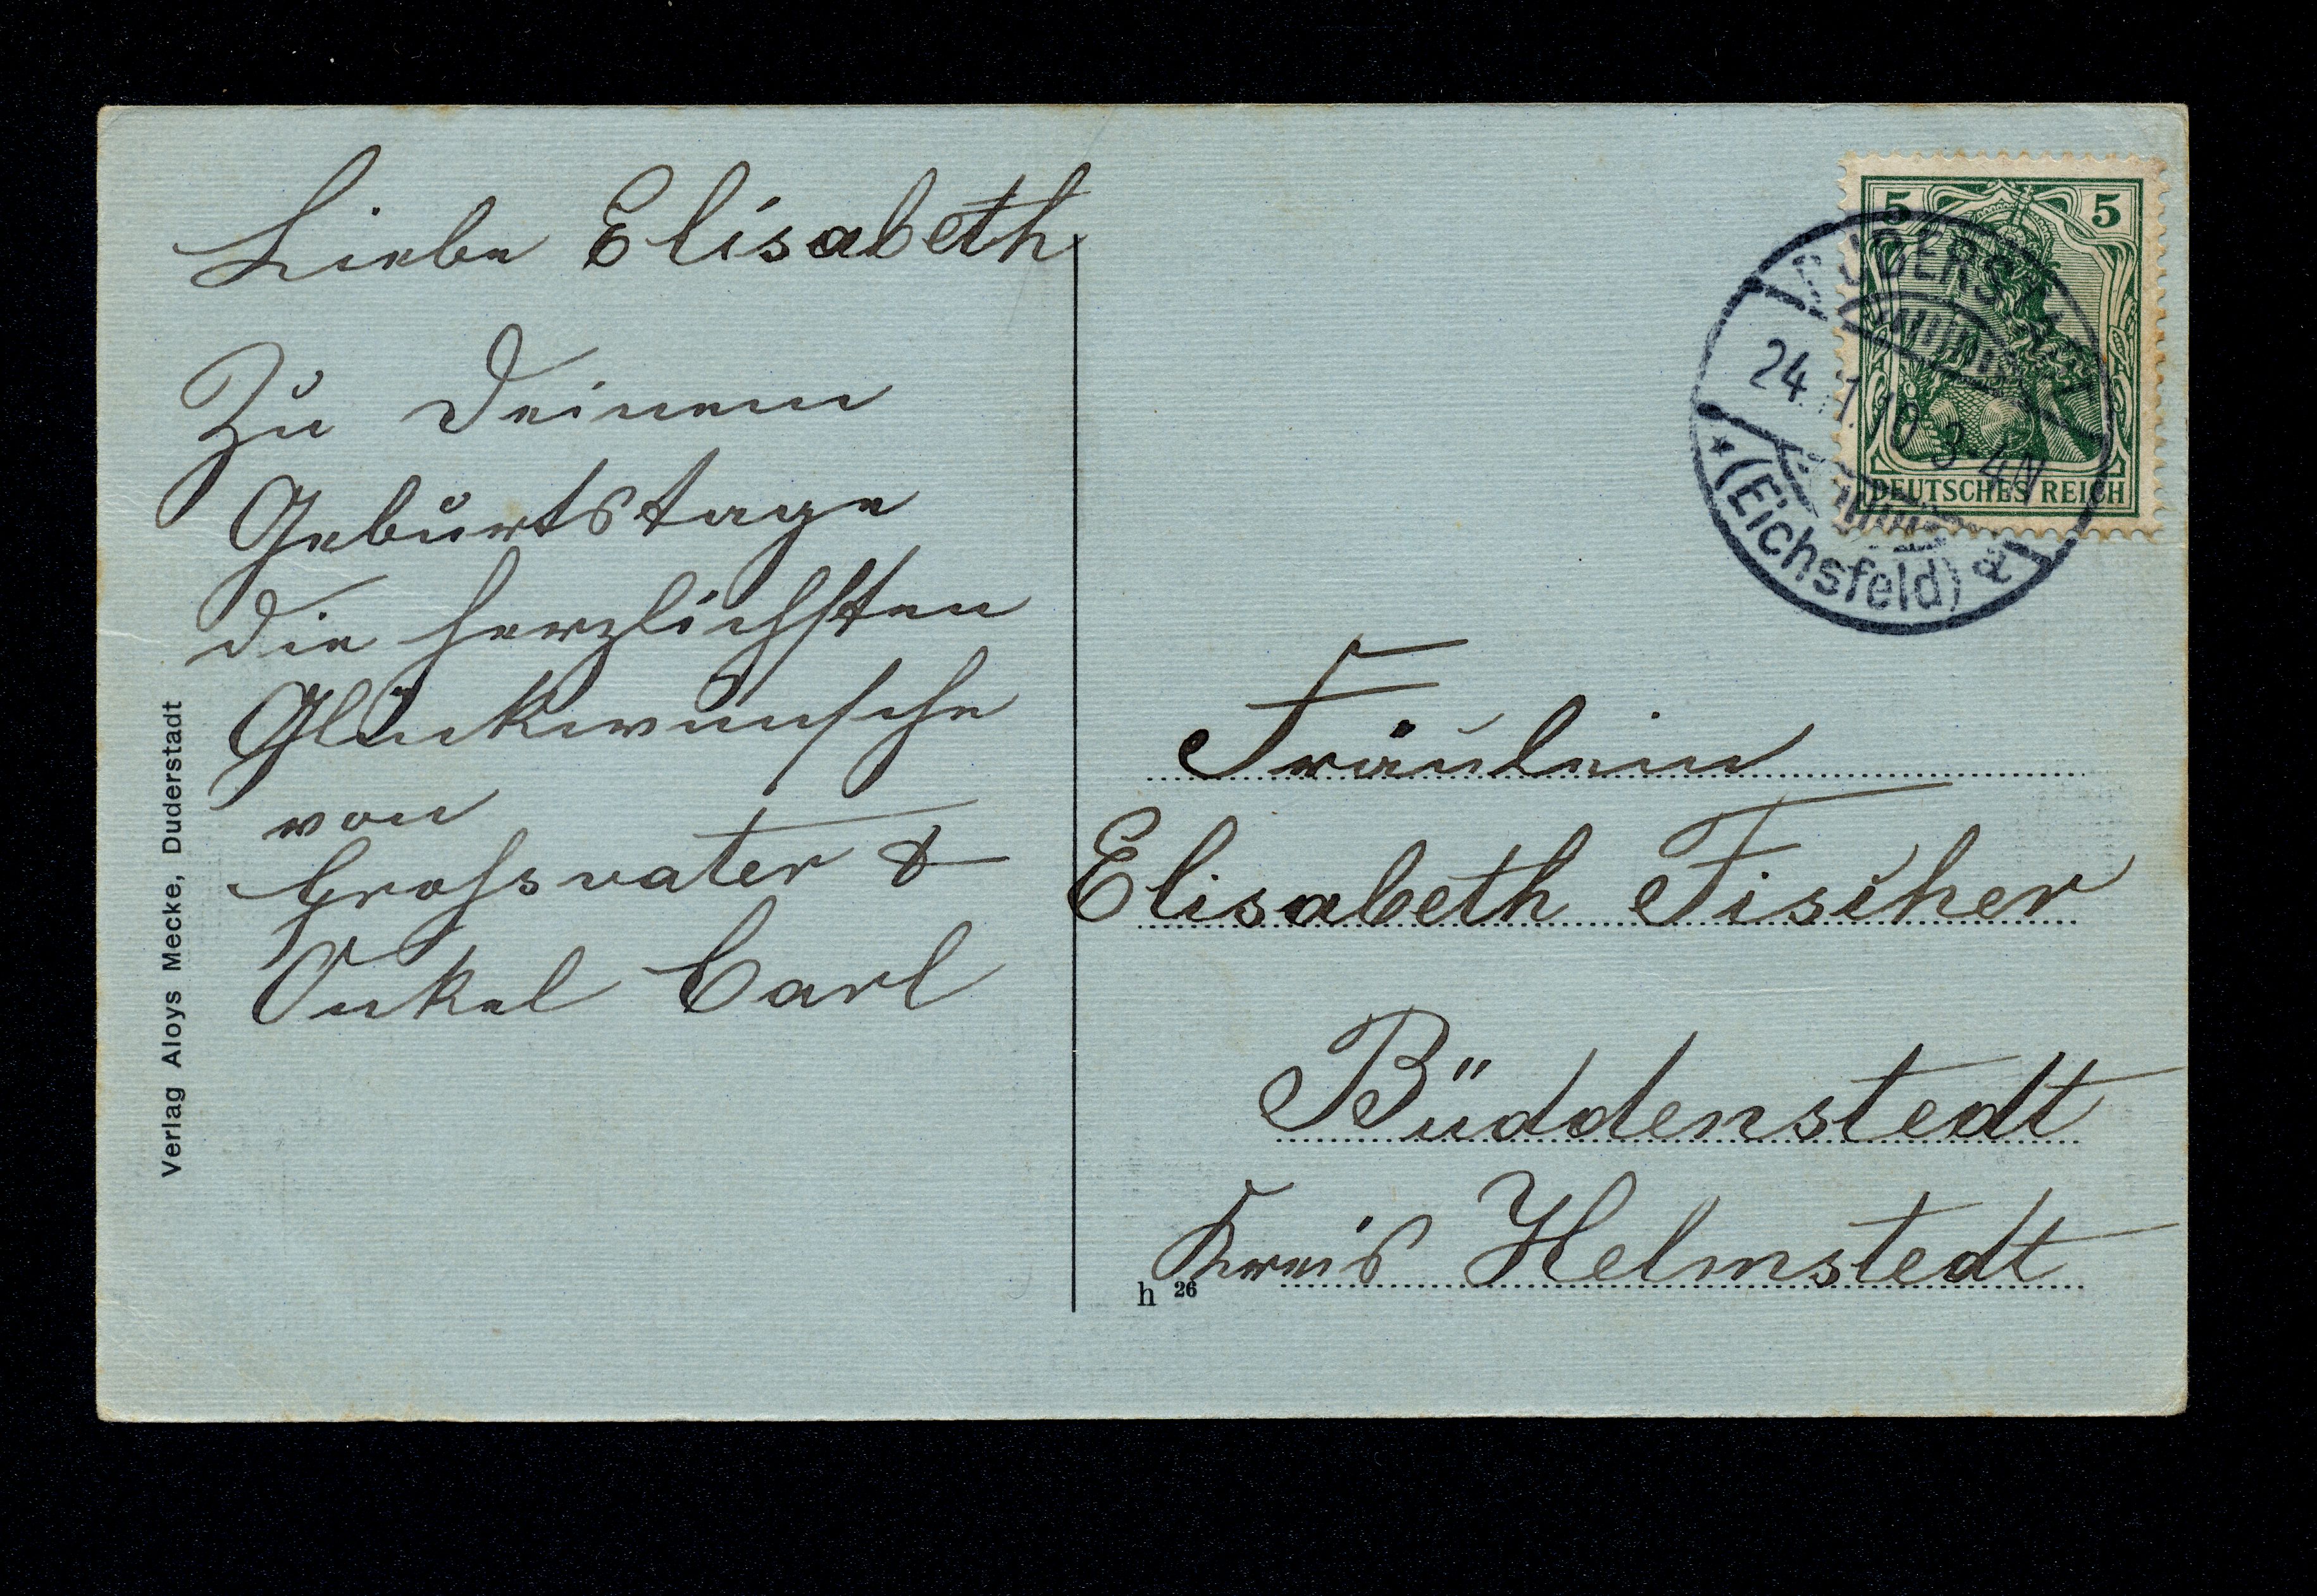 Liebe Elisabeth
Zu Deinem
Geburtstage
die herzlichsten
Glückwünsche
von
Grossvater &
Onkel Carl
Verlag Aloys Mecke, Duderstadt
5 5
DEUTSCHES REICH
DUDERSTADT
24. 10 3-4N
* (Eichsfeld) a
Fräulein
Elisabeth Fischer
Büddenstedt
Kreis Helmstedt
h 26